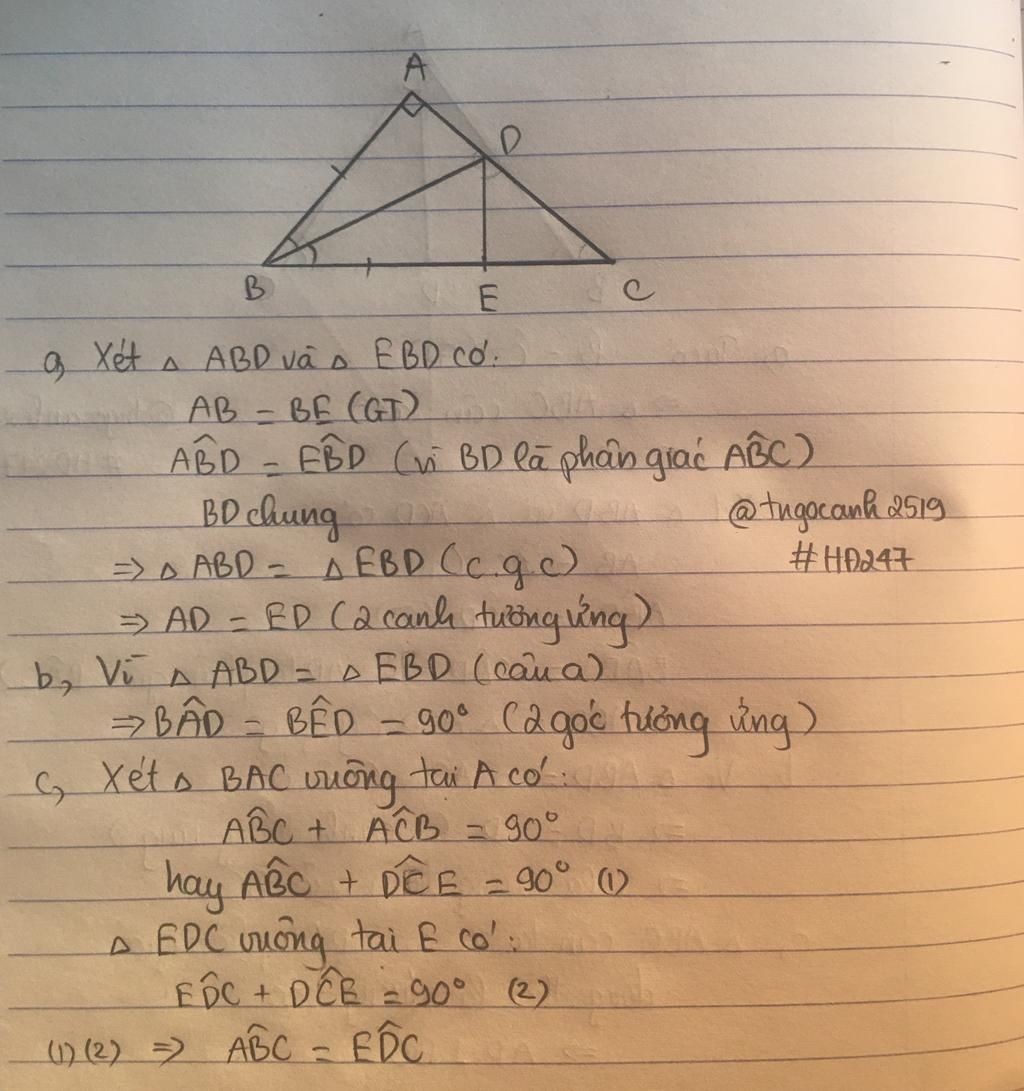 A
D
B
E
C
a, Xét △ ABD và △ EBD có:
AB = BE (GT)
AB̂D = EB̂D (vì BD là phân giác AB̂C)
BD chung
@tngocanh2519
⇒ △ ABD = △ EBD (c.g.c)
#HĐ247
⇒ AD = ED (2 cạnh tương ứng)
b, Vì △ ABD = △ EBD (câu a)
⇒ BÂD = BÊD = 90° (2 góc tương ứng)
c, Xét △ BAC vuông tại A có:
AB̂C + AĈB = 90°
hay AB̂C + DĈE = 90° (1)
△ EDC vuông tại E có:
ED̂C + DĈE = 90° (2)
(1) (2) ⇒ AB̂C = ED̂C